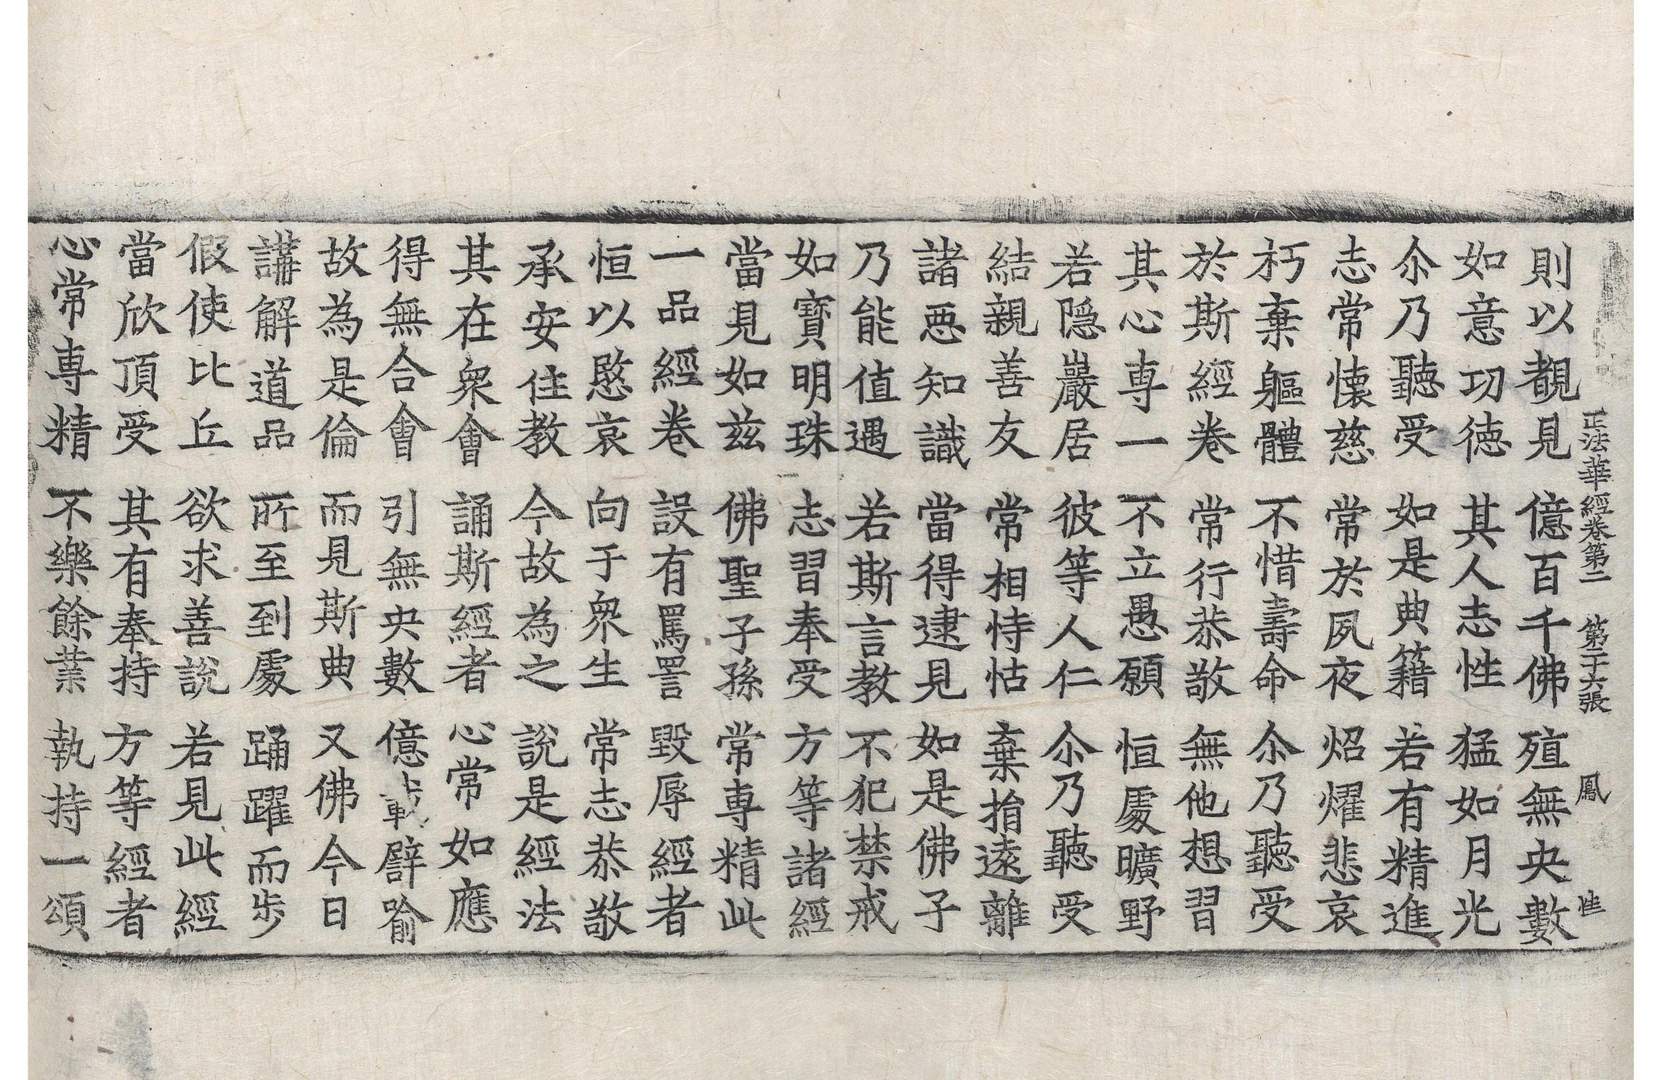 正法華經卷第二 第二十六張 鳳 惟
則以覩見 億百千佛 殖無央數
如意功徳 其人志性 猛如月光
尒乃聽受 如是典籍 若有精進
志常懐慈 常於夙夜 炤燿悲哀
朽棄軀體 不惜壽命 尒乃聽受
於斯經卷 常行恭敬 無他想習
其心専一 不立愚願 恒處曠野
若隱巖居 彼等人仁 尒乃聽受
結親善友 常相恃怙 棄捐遠離
諸惡知識 當得逮見 如是佛子
乃能值遇 若斯言教 不犯禁戒
如寶明珠 志習奉受 方等諸經
當見如兹 佛聖子孫 常専精此
一品經卷 設有罵詈 毀辱經者
恒以愍哀 向于衆生 常志恭敬
承安住教 今故為之 說是經法
其在衆會 誦斯經者 心常如應
得無合會 引無央數 億載譬喻
故為是倫 而見斯典 又佛今日
講解道品 所至到處 踊躍而步
假使比丘 欲求善說 若見此經
當欣頂受 其有奉持 方等經者
心常専精 不樂餘業 執持一頌